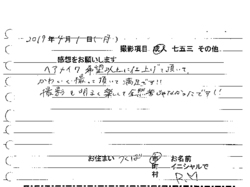 2019年9月1日(月)
撮影項目 成人 七五三 その他
感想をお願いします
ヘアメイク希望以上に仕上げて頂いて、
かわいく撮って頂いて満足です!!
撮影も明るく楽しくて全然苦じゃなかったです!!
お住まい つくば 市 町 村 お名前 イニシャルで R.M